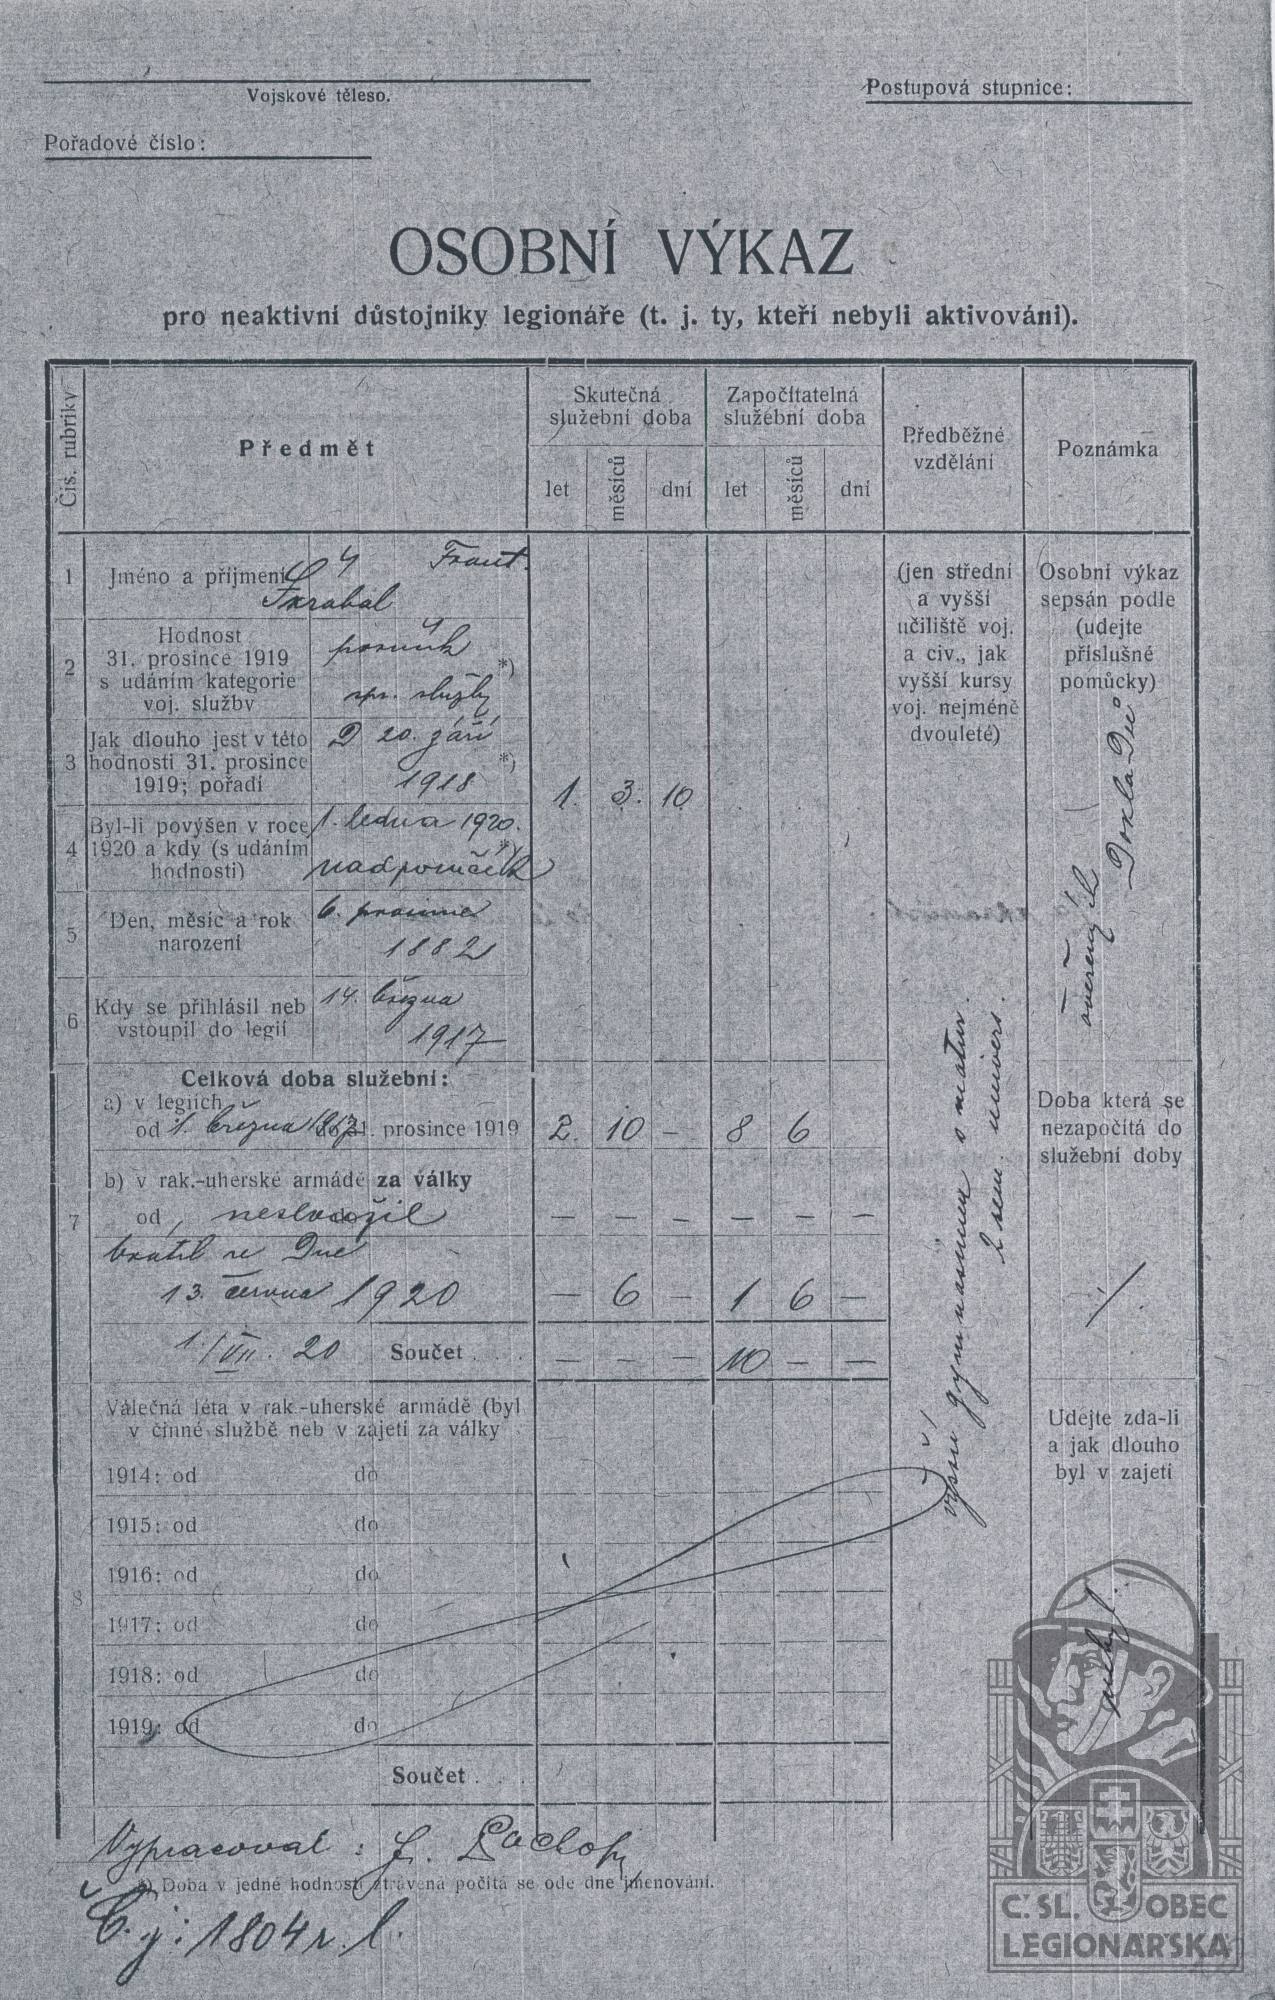 Vojskové těleso.
Postupová stupnice:
Pořadové číslo:
OSOBNÍ VÝKAZ
pro neaktivní důstojníky legionáře (t. j. ty, kteří nebyli aktivováni).
Čís. rubriky
Předmět
Skutečná
služební doba
let
měsíců
dní
Započítatelná
služební doba
let
měsíců
dní
Předběžné
vzdělání
Poznámka
1
Jméno a příjmení
Frant.
Škrabal
2
Hodnost
31. prosince 1919
s udáním kategorie
voj. služby
poručík
*)
spr. služby
3
Jak dlouho jest v této
hodnosti 31. prosince
1919; pořadí
D 20. září
*)
1918
1. 3. 10
4
Byl-li povýšen v roce
1920 a kdy (s udáním
hodnosti)
1. ledna 1920.
*)
nadporučík
5
Den, měsíc a rok
narození
6. prosince
1882
6
Kdy se přihlásil neb
vstoupil do legií
14. března
1917
(jen střední
a vyšší
učiliště voj.
a civ., jak
vyšší kursy
voj. nejméně
dvouleté)
vyšší gymnasium s matur.
2 sem. univers.
Osobní výkaz
sepsán podle
(udejte
příslušné
pomůcky)
ověřených
Dokladů
7
Celková doba služební:
a) v legiích
od 1. března 1917 do 31. prosince 1919
2. 10 — 8 6
b) v rak.-uherské armádě za války
od nesloužil
— — — — — —
vrátil se Dne
13. června 1920
— 6 — 1 6 —
1./VII. 20 Součet . . .
— — — 10 — —
Doba která se
nezapočítá do
služební doby
/
8
Válečná léta v rak.-uherské armádě (byl
v činné službě neb v zajetí za války
1914: od do
1915: od do
1916: od do
1917: od do
1918: od do
1919: od do
Součet . . .
Udejte zda-li
a jak dlouho
byl v zajetí
nebyl.
Vypracoval: J.
*) Doba v jedné hodnosti ztrávená počítá se ode dne jmenování.
Č. j: 1804 r. l.
Č. SL. OBEC
LEGIONÁŘSKÁ